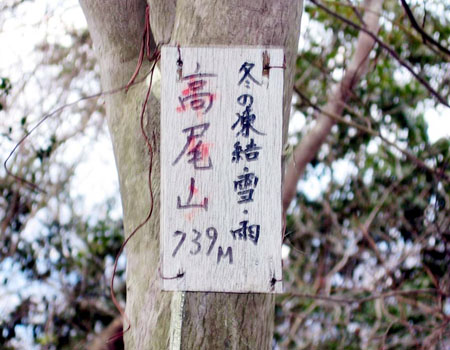 冬の凍結雪・雨
高尾山
739M